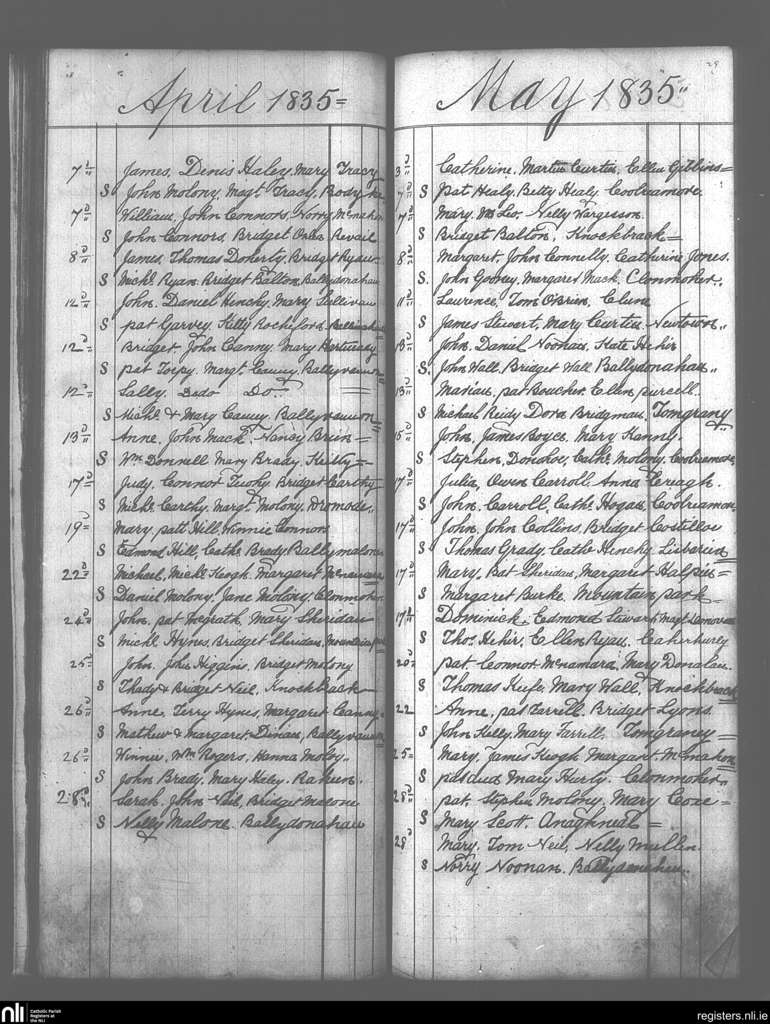 April 1835=
7th James, Denis Haley, Mary Tracy
S John Molony, Magt. Tracy, Bodyke
7th William, John Connors, Norry McMahon
S John Connors, Bridget
8th James, Thomas Doherty, Bridget Ryan
S Michl. Ryan, Bridget Balton, Ballydonahau
12th John, Daniel Henchy, Mary Sullivan
S pat Garvey, Kitty Rochford,
12th Bridget, John Canny, Mary
S pat Torpy, Margt. Canny, Ballyvannon
12th Sally. Dodo Do.
S Michl. & Mary Canny, Ballyvannon
13th Anne, John Mack, Nancy Brien=
S Wm. Donnell Mary Brady,
17th Judy, Connor Tuohy Bridget Carthy
S Michl. Carthy, Margt. Molony, Dromode..
19th Mary, patt Hill, Winnie Connors
S Edmond Hill, Cathe. Brady, Ballymalone
22nd Michael, Michl. Keogh, Margaret McNamara
S Daniel Molony, Jane Molony, Clonmoher
24th John, pat Megrath, Mary Sheridan
S Michl. Hynes, Bridget Sheridan, Mountain park
25th John, John Higgins, Bridget Molony
S Thady & Bridget Neil, Knockbrack
26th Anne, Terry Hynes, Margaret Canny
S Mathew & Margaret Dinan, Ballyvannon
26th Winnie, Wm. Rogers, Hanna Moloy..
S John Brady, Mary Haley, Raheen.
28th Sarah, John Neil, Bridget Malone
S Nelly Malone. Ballydonahau
May 1835"
3d Catherine, Martin Curtin, Ellen Gibbins=
S pat Healy, Betty Healy Coolreamore.
7th Mary, Nelly
S Bridget Balton, Knockbrack=
8th Margaret, John Connelly, Catherine Jones.
S. John Margaret Mack, Clonmoher.
11th Lawrence, Tom O'Brien,
S James Stewart, Mary Curtin, Newtown"
13th John, Daniel Noonan, Kate Hehir
S. John Wall, Bridget Wall Ballydonahau"
13th Marian, pat Boucher, Ellen purcell.
S Michael Reidy Dora Bridgman, Tomgrany
15th John, James Boyce, Mary Hanny.
S Stephen Donohoe, Cathe. Molony Coolreamore
17th Julia, Owen Carroll, Anna Creagh.
S John Carroll, Cathe. Hogan, Coolreamore
17th John, John Collins, Bridget Costilloe
S Thomas Grady, Cathe Henchy,
17th Mary, Pat Sheridan, Margaret Halpin=
S Margaret Burke, Mountain park=
17th Dominick, Edmond Magt.
S Thos. Hehir, Ellen Ryan, Caherhurly
20th pat Connor McNamara, Mary Donalan.
S Thomas Mary Wall, Knockbrack
22 Anne, pat Farrell, Bridget Lyons
S John Kelly, Mary Farrell, Tomgraney=
25th Mary, James Keogh Margaret McMahon
S Mary Hurly, Clonmoher"
28th pat, Stephen Molony, Mary
S Mary Scott, Anaghneal=
28th Mary, Tom Neil, Nelly Mullin.
S Norry Noonan, Ballydonahau..
nli
Catholic Parish
Registers at
the NLI
registers.nli.ie